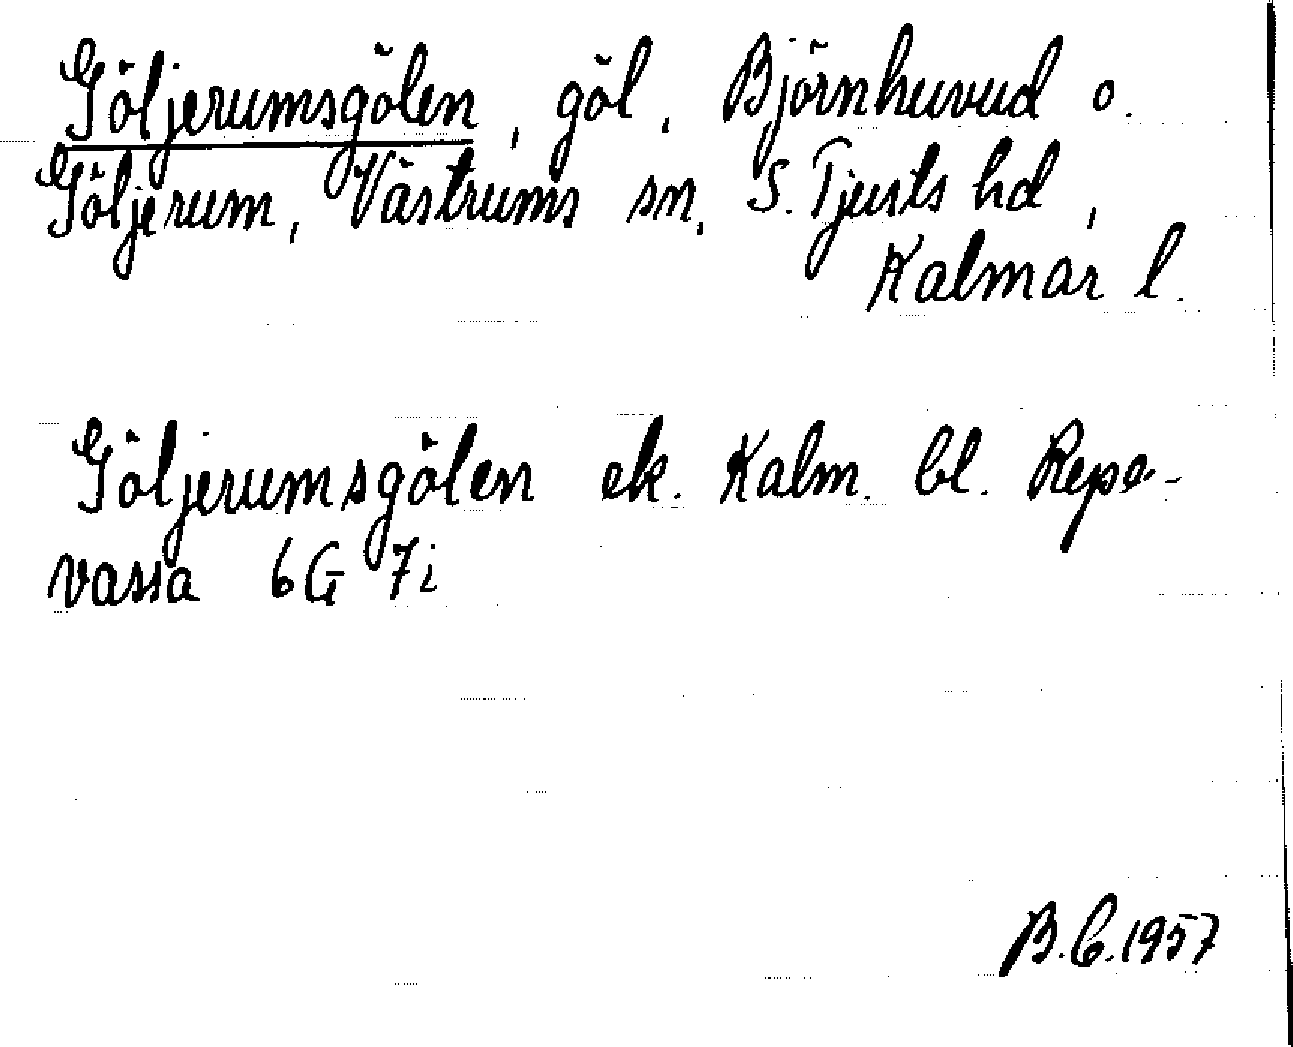 Göljerumsgölen, göl, Björnhuvud o.
Göljerum, Västrums sn, S. Tjusts hd,
Kalmar l.
Göljerumsgölen ek. Kalm. bl. Repe-
vassa 6G 7i
B.C. 1957